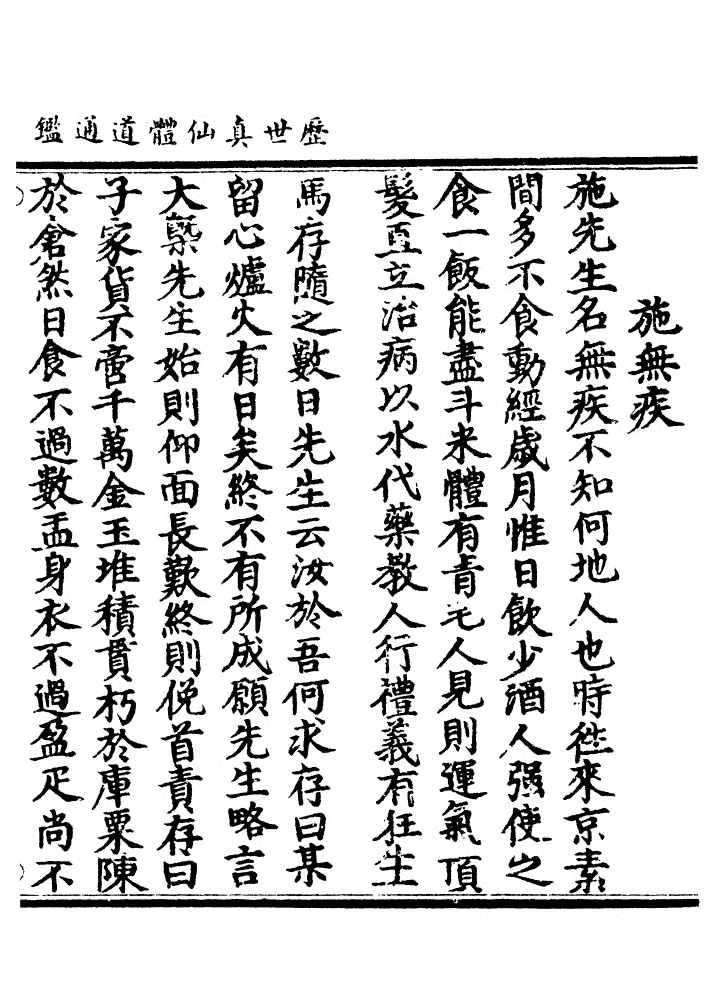 歷世真仙體道通鑑
施無疾
施先生名無疾不知何地人也時往來京素
間多不食動經歲月惟日飲少酒人强使之
食一飯能盡斗米體有青毛人見則運氣頂
髮直立治病以水代藥教人行禮義有狂生
馬存隨之數日先生云汝於吾何求存曰某
留心爐火有日矣終不有所成願先生略言
大槩先生始則仰面長歎終則俛首責存曰
子家貨不啻千萬金玉堆積貫朽於庫粟陳
於倉然日食不過數盂身衣不過盈疋尚不